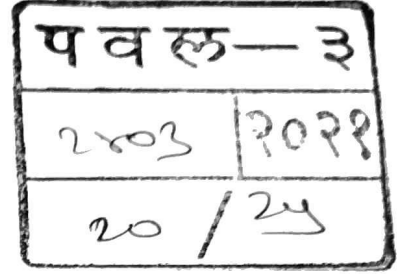 पवल — ३
२४०३ २०२१
२० / २५